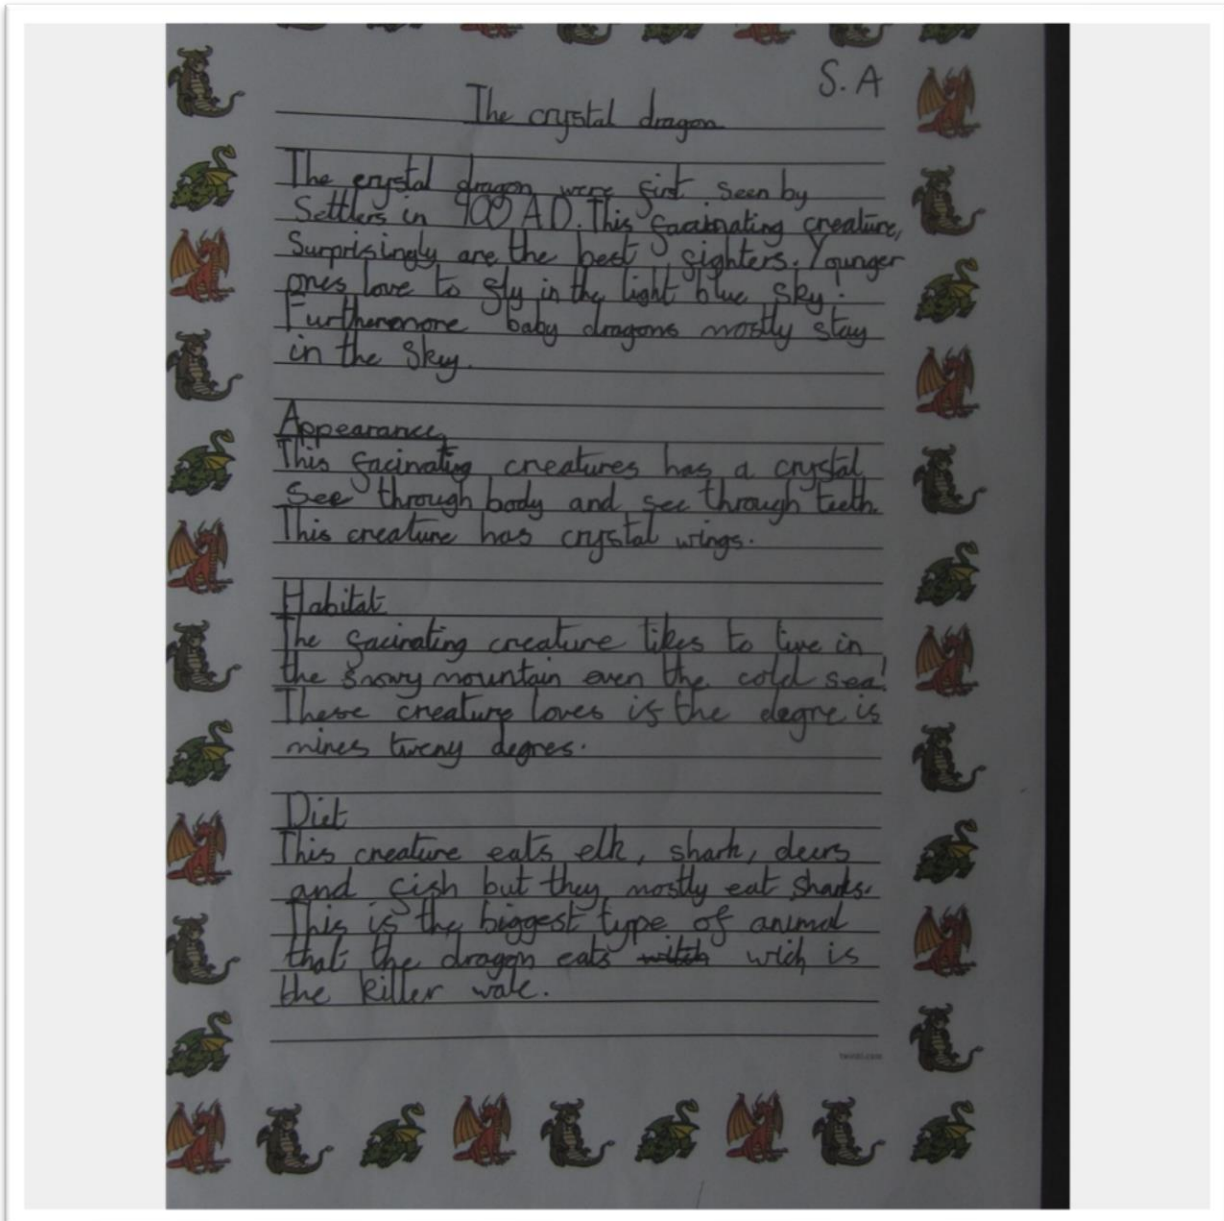 S.A
The crystal dragon
The crystal dragon were first seen by
Settlers in 900 A.D. This facinating creature,
Surprisingly are the best fighters. Younger
ones love to fly in the light blue sky!
Furthermore baby dragons mostly stay
in the sky.
Appearance
This facinating creatures has a crystal
see through body and see through teeth.
This creature has crystal wings.
Habitat
The facinating creature likes to live in
the snowy mountain even the cold sea!
These creature loves is the degre is
mines tweny degres.
Diet
This creature eats elk, shark, deers
and fish but they mostly eat sharks.
This is the biggest type of animal
that the dragon eats witch wich is
the killer wale.
twinkl.com